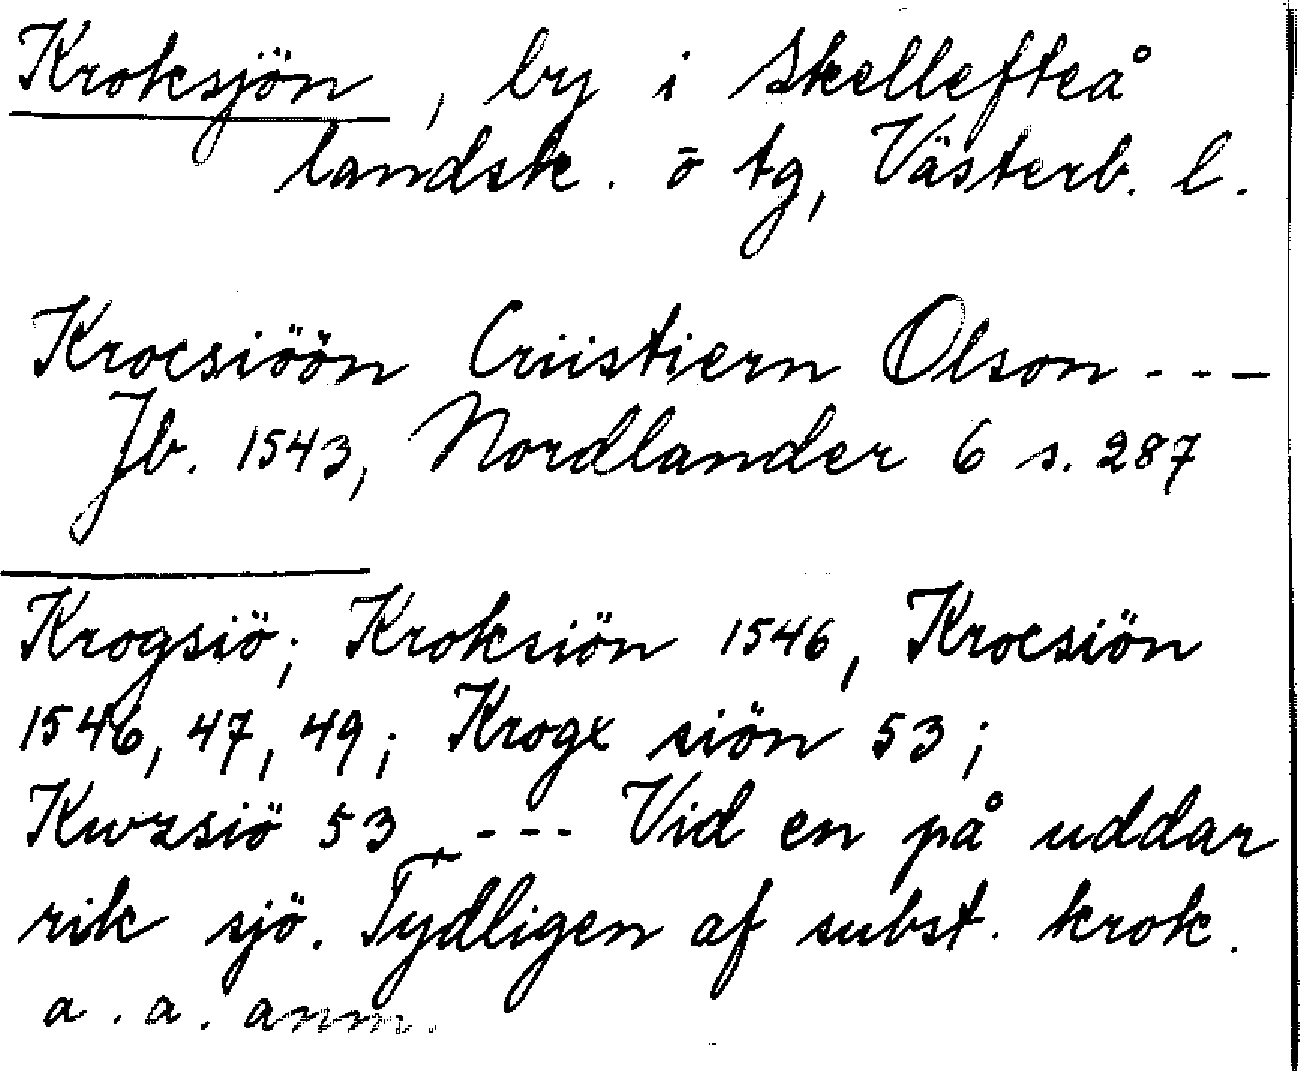 Kroksjön, by i Skellefteå
landsk. ö tg, Västerb. l.
Krocsiöön Cristiern Olson - - -
Jb. 1543, Nordlander 6 s. 287
Krogsiö; Kroksiön 1546, Krocsiön
1546, 47, 49; Krogx siön 53;
Kwzsiö 53 - - - Vid en på uddar
rik sjö. Tydligen af subst. krok.
a. a. anm.